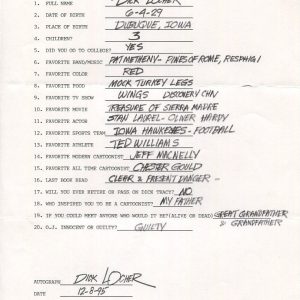 1. FULL NAME DICK LOCHER
2. DATE OF BIRTH 6-4-29
3. PLACE OF BIRTH DUBUQUE, IOWA
4. CHILDREN? 3
5. DID YOU GO TO COLLEGE? YES
6. FAVORITE BAND/MUSIC PAT METHENY - PINES OF ROME, RESPIGHI
7. FAVORITE COLOR RED
8. FAVORITE FOOD MOCK TURKEY LEGS
9. FAVORITE TV SHOW WINGS DISCOVERY CHN
10. FAVORITE MOVIE TREASURE OF SIERRA MADRE
11. FAVORITE ACTOR STAN LAUREL - OLIVER HARDY
12. FAVORITE SPORTS TEAM IOWA HAWKEYES - FOOTBALL
13. FAVORITE ATHLETE TED WILLIAMS
14. FAVORITE MODERN CARTOONIST JEFF MACNELLY
15. FAVORITE ALL TIME CARTOONIST CHESTER GOULD
16. LAST BOOK READ CLEAR & PRESENT DANGER -
17. WILL YOU EVER RETIRE OR PASS ON DICK TRACY? NO
18. WHO INSPIRED YOU TO BE A CARTOONIST? MY FATHER
19. IF YOU COULD MEET ANYONE WHO WOULD IT BE(ALIVE OR DEAD) GREAT GRANDFATHER
& GRANDFATHER
20. O.J. INNOCENT OR GUILTY? GUILTY
AUTOGRAPH DICK LOCHER
DATE 12-8-95